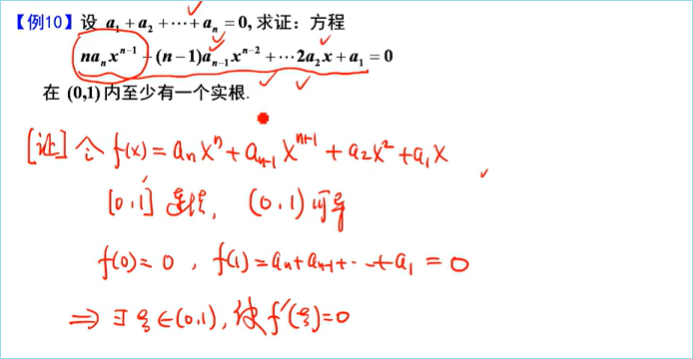 【例10】设 a₁ + a₂ + ⋯ + aₙ = 0, 求证：方程
naₙxⁿ⁻¹ + (n−1)aₙ₋₁xⁿ⁻² + ⋯2a₂x + a₁ = 0
在 (0,1) 内至少有一个实根.
[证] 令 f(x) = aₙxⁿ + aₙ₋₁xⁿ⁺¹ + a₂x² + a₁x
[0,1] 连续, (0,1) 可导
f(0) = 0 , f(1) = aₙ + aₙ₋₁ + ⋯ + a₁ = 0
⇒ ∃ ξ ∈ (0,1), 使 f′(ξ) = 0